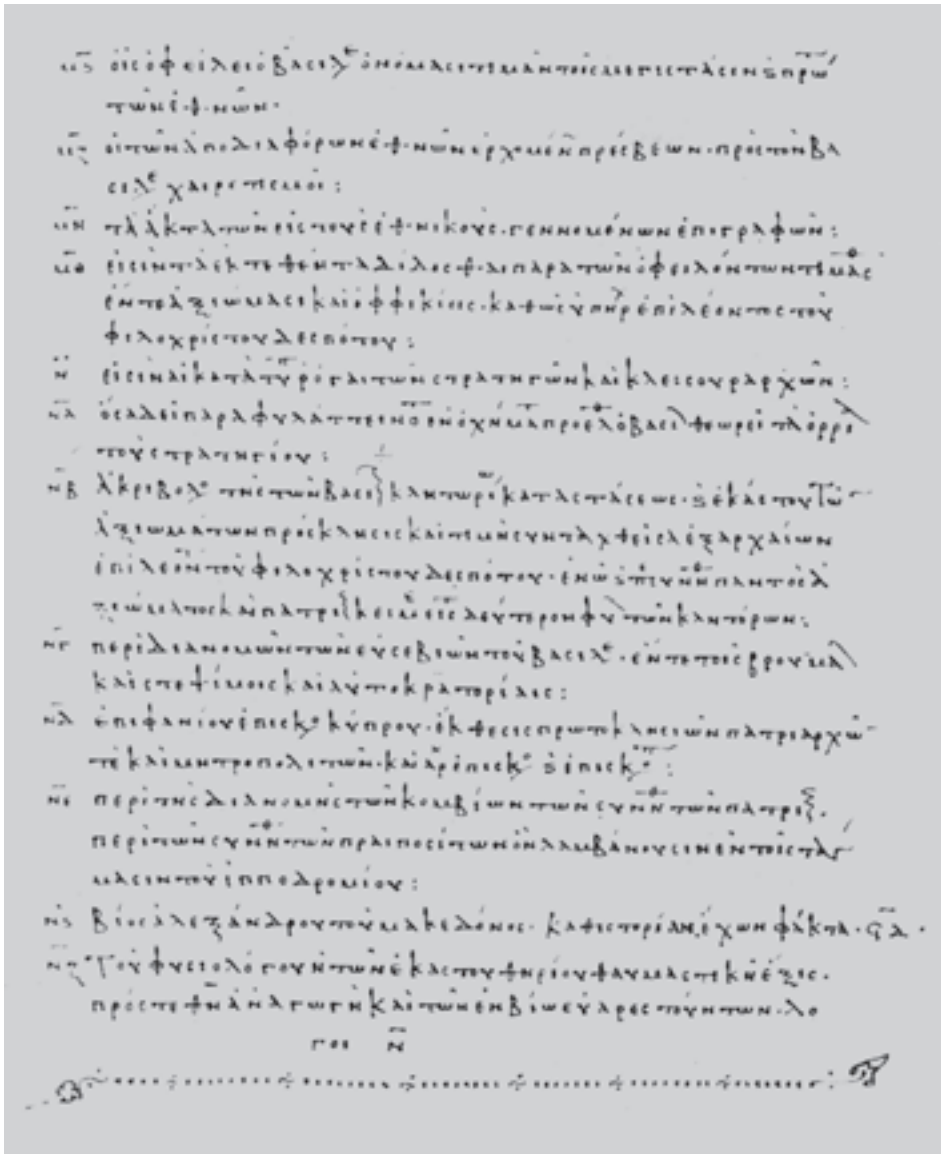 μϛ οἷς ὀφείλει ὁ βασιλε ὀνόμασι τιμᾶν τοὺς μεγιστάσιν ϛ πρώ
των ἐθνῶν·
μζ οἱ τῶν ἀπὸ διαφόρων ἐθνῶν ἐρχομεν πρέσβεων· πρὸς τὸν βα
σιλε χαιρετισμοί:
μη τὰ ἄκτα τῶν εἰς τοὺς ἐθνικοὺς γεννομένων ἐπιγραφῶν:
μθ εἰσὶν τὰ ἐκτεθέντα διδοσθαι παρὰ τῶν ὀφειλόντων τιμᾶσ
ἔν τε ἀξιώμασι καὶ ὀφφικίοις· καθὼς ὑπῆρ ἐπὶ λέοντος τοῦ
φιλοχρίστου δεσπότου:
ν εἰσιν αἱ κατὰ τύπ ῥόγαι τῶν στρατηγῶν καὶ κλεισουραρχῶν:
να ὅσα δεῖ παραφυλάττειν ὄχημα προελθ ὁ βασι θεωρεῖ τὰ ὁρρι
τοῦ στρατηγίου:
νβ ἀκριβολο τῆς τῶν βασι κλητωρί καταστάσεως· ϛ ἑκάστου τῶ
ἀξιωμάτων πρόσκλησις καὶ τιμὴ συνταχθεῖσα ἐξ ἀρχαίων
ἐπὶ λέοντ τοῦ φιλοχρίστου δεσπότου· ἐν ᾧ ϛ συνηθ παντὸς ἀ
ξιώματος καὶ πατρι κειμ εἰς δεύτερον φυ τῶν κλητόρων:
νγ περὶ διανομῶν τῶν εὐσεβιῶν τοῦ βασιλε· ἔν τε τοῖς βρουμα
καὶ στεψίμοις καὶ αὐτοκρατορίαις:
νδ ἐπιφανίου ἐπισκο κύπρου· ἔκθεσις πρωτοκλησιῶν πατριαρχῶ
τὲ καὶ μητροπολιτῶν· καὶ ἀρχιεπισκο ϛ ἐπισκοπ:
νε περὶ τῆς διανομῆς τῶν κομβίων τῶν συνηθ τῶν πατρι.
περὶ τῶν συνηθ τῶν πραιποσίτων ὧν λαμβάνουσιν ἐν τοῖς τάγ
μασιν τοῦ ἱπποδρομίου:
νϛ βίος ἀλεξάνδρου τοῦ μακεδόνος· καθ ἱστορίαν ἔχων φάκτα· ϛα·
νζ Τοῦ φυσιολόγου ἡ τῶν ἑκάστου θηρίου θαυμαστικὴ ἕξις·
πρός τε θν ἀναγωγὴ καὶ τῶν ἐν βίῳ εὐαρεστούντων· λο
γοι ν